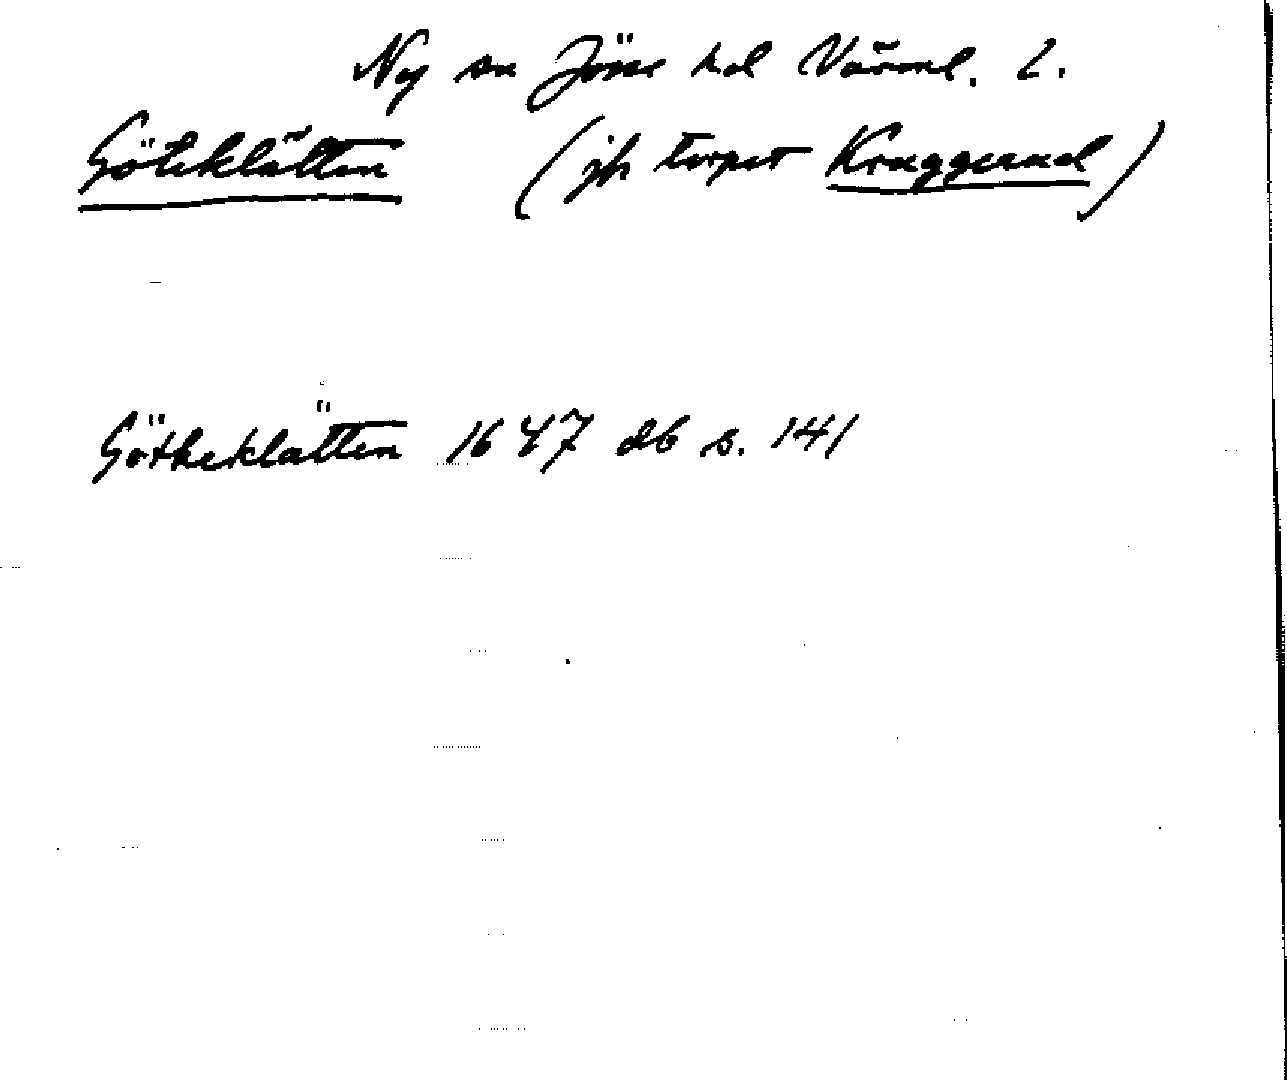 Ny sn Jösse hd Värml. l.
Göteklätten (jfr torpet Kraggerud)
Götheklätten 1647 db s. 141